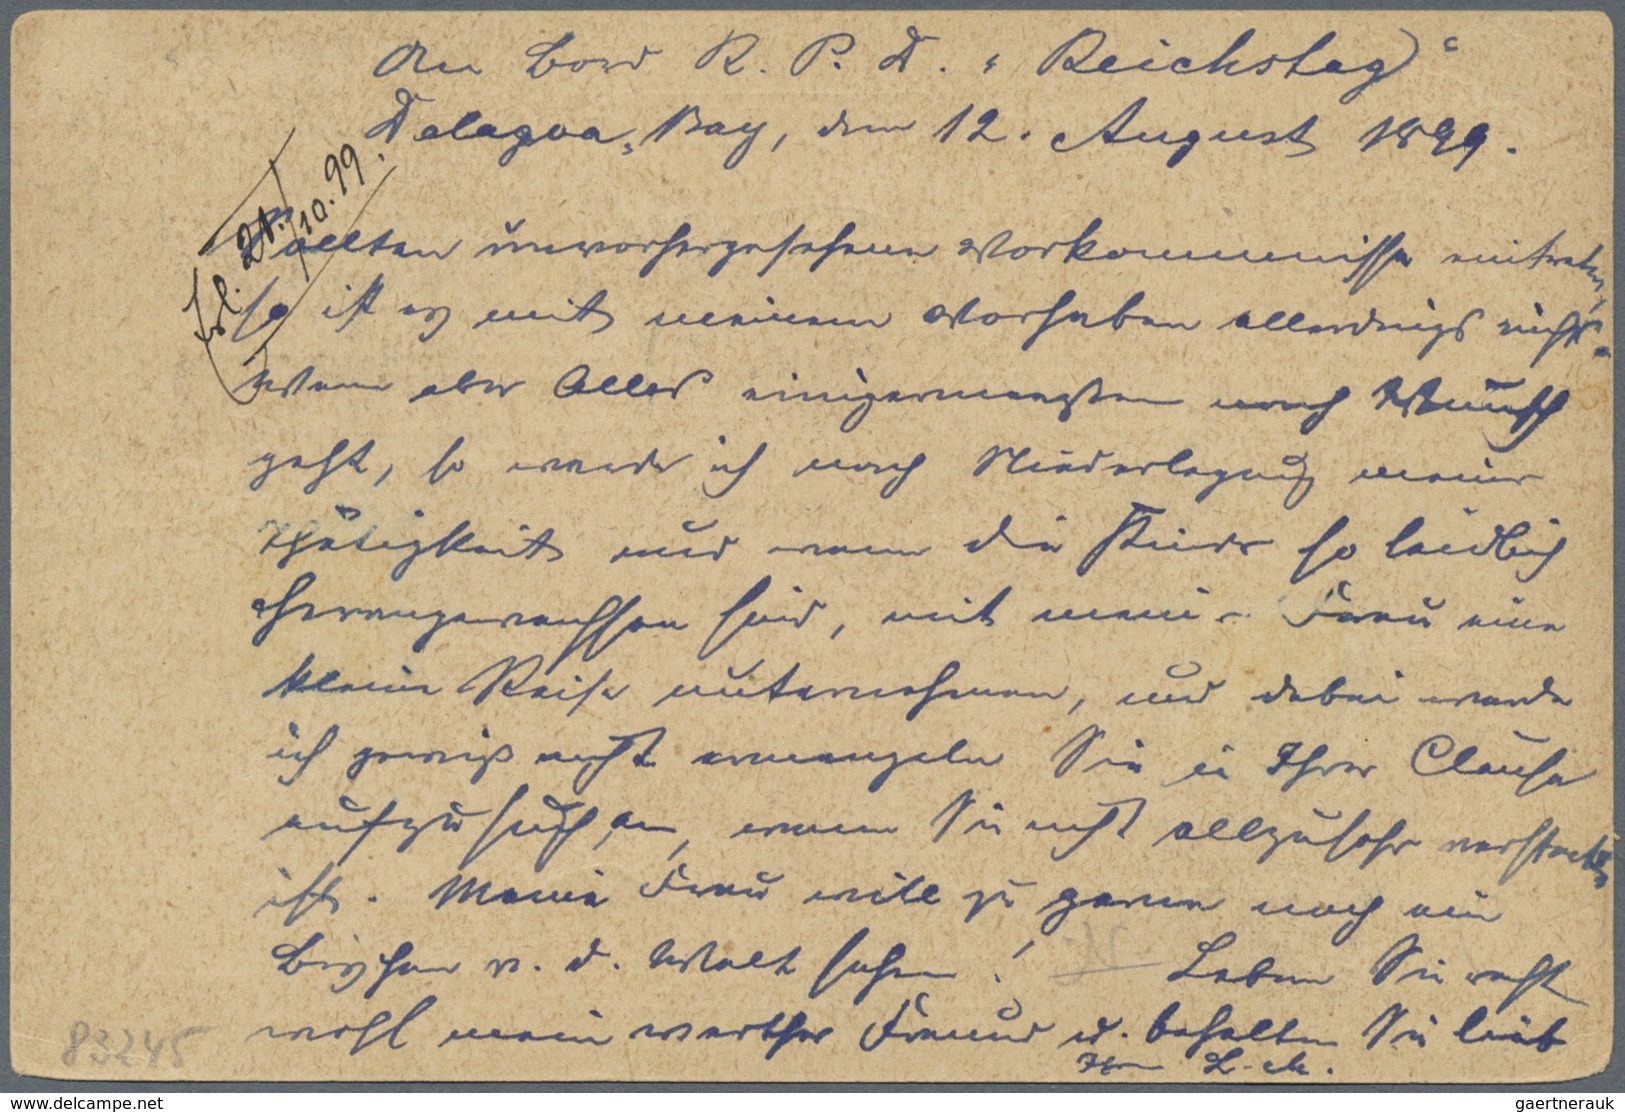 An Bord R. P. D. "Reichstag"
Delagoa-Bay, den 12. August 1899.
Erl. 21./10. 99.
Sollten unvorhergesehene Vorkommnisse eintreten,
so ist es mit meinem Vorhaben allerdings nichts.
Wenn aber Alles einigermaaßen nach Wunsch
geht, so werde ich nach Niederlegung meiner
Thätigkeit und wenn die Kinder so leidlich
herangewachsen sind, mit meiner Frau eine
kleine Reise unternehmen, und dabei werde
ich gewiß nicht ermangeln Sie in Ihrer Clause
aufzusuchen, wenn Sie nicht allzusehr versteckt
ist. Meine Frau will zu gerne noch ein
Bischen v. d. Welt sehen! Leben Sie recht
wohl mein werther Freund u. behalten Sie lieb
Ihren
83245
www.delcampe.net
gaertnerauk